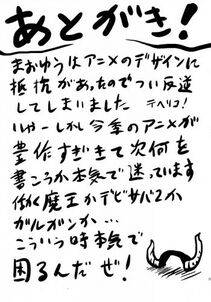 あとがき!
まおゆうはアニメのデザインに
抵抗があったのでつい反逆
してしまいました テペリコ!
いやーしかし今季のアニメが
豊作すぎきて次何を
書こうか本気で迷っています
働く魔王かデビサバ2か
ガルガンか…
こういう時本気で
困るんだぜ!